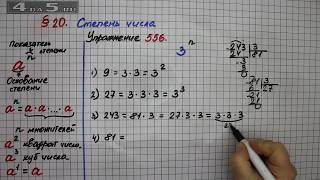 4DA5.RU
§ 20. Степень числа
Упражнение 556.
Показатель степени
aⁿ
Основание степени
aⁿ = a · a · ... · a
n множителей
a² квадрат числа.
a³ куб числа.
a¹ = a
3ⁿ
1) 9 = 3 · 3 = 3²
2) 27 = 3 · 3 · 3 = 3³
3) 243 = 81 · 3 = 27 · 3 · 3 = 3 · 3 · 3
4) 81 =
243 | 3
81 | 3